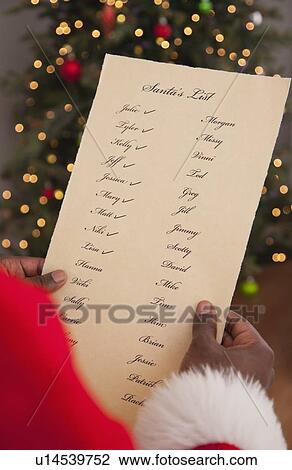 Santa's List
Julie ✓
Tyler ✓
Kelly ✓
Jeff ✓
Jessica ✓
Mary ✓
Matt ✓
Niki ✓
Lisa ✓
Hanna
Vicki
Sally
Morgan
Missy
Vinni
Tod
Greg
Jill
Jimmy
Scotty
David
Mike
Tom
Kim
Brian
Jessie
Patrick
u14539752 www.fotosearch.com